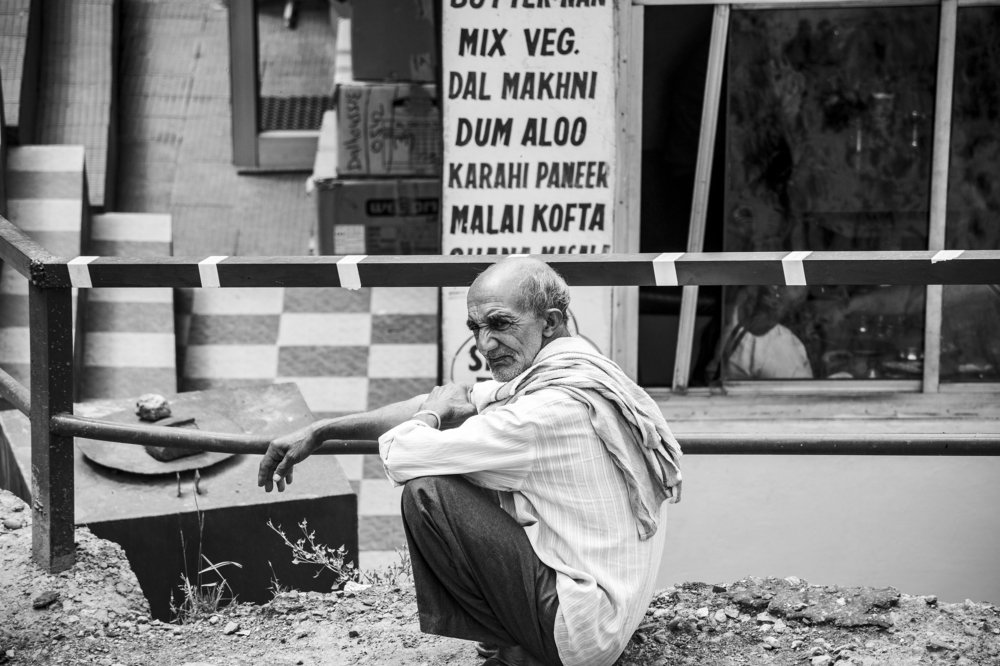 BUTTER NAN
MIX VEG.
DAL MAKHNI
DUM ALOO
KARAHI PANEER
MALAI KOFTA
CHANA MASALA
Dalhousie
0352